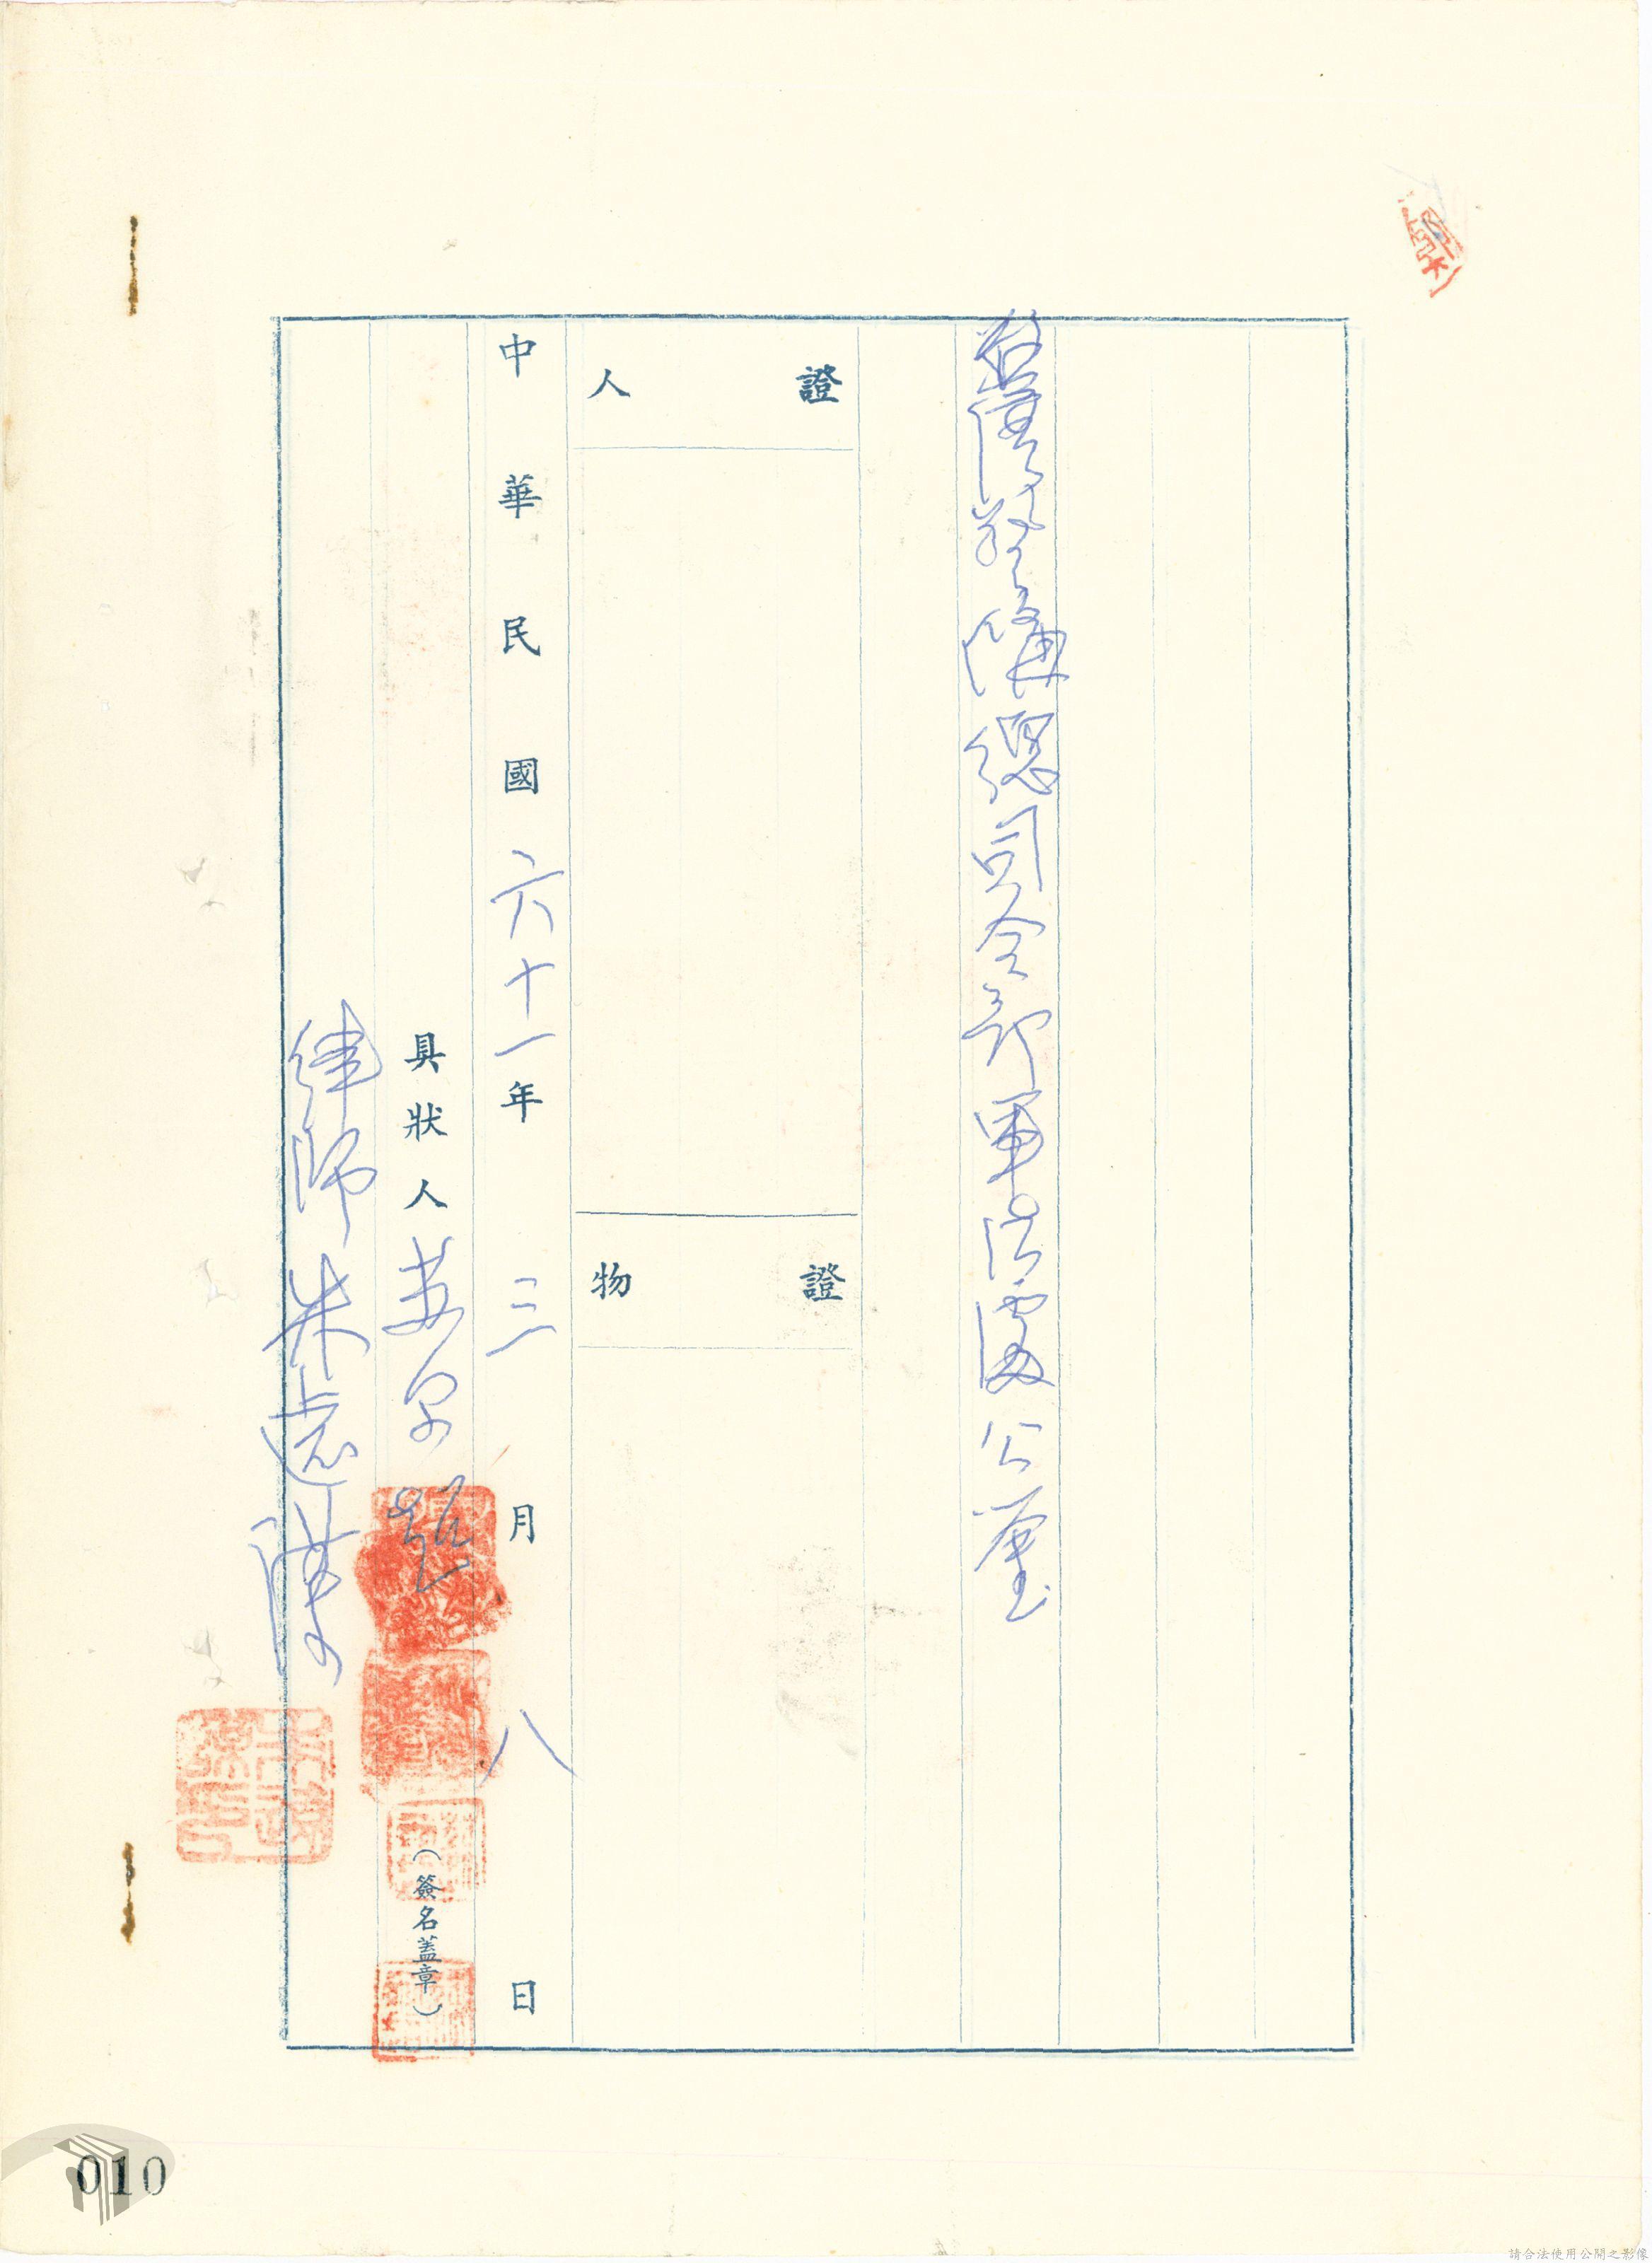 台灣警備總司令部軍法處 公鑒
證人
證物
中華民國六十一年三月八日
具狀人
(簽名蓋章)
律師 朱遠謀
010
請合法使用公開之影像